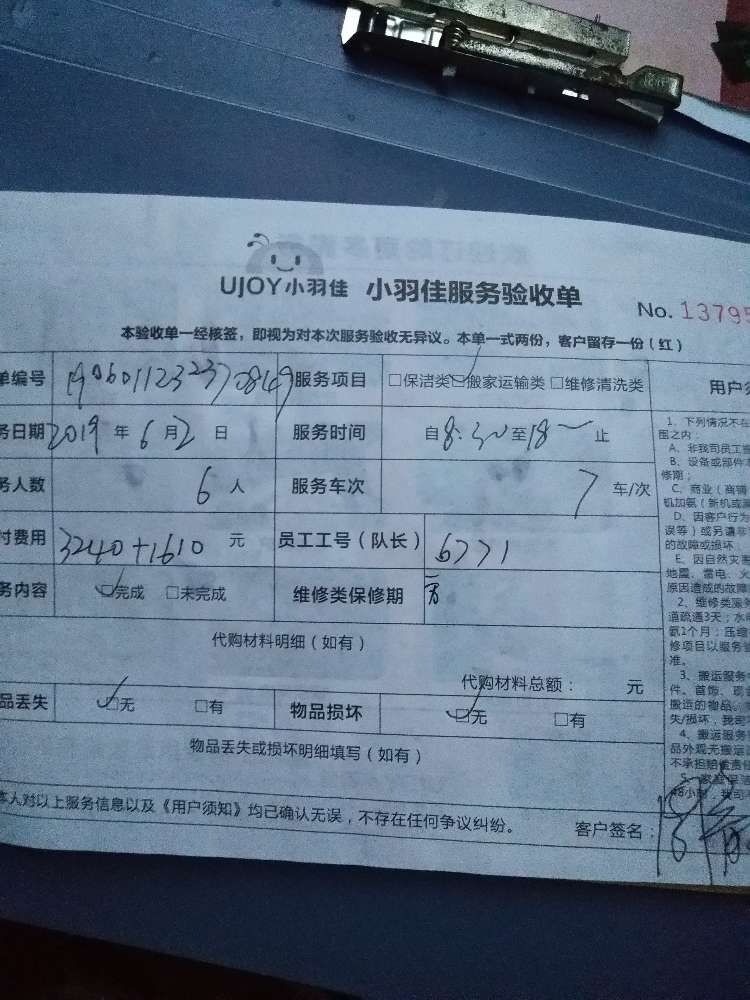 UJOY小羽佳 小羽佳服务验收单
No. 13795
本验收单一经核签，即视为对本次服务验收无异议。本单一式两份，客户留存一份（红）
单编号 服务项目 □保洁类 ☑搬家运输类 □维修清洗类
务日期 2019 年 6 月 2 日 服务时间 自 8:30 至 18 止
务人数 6 人 服务车次 7 车/次
付费用 3240+1610 元 员工工号（队长） 6771
务内容 ☑完成 □未完成 维修类保修期
代购材料明细（如有）
代购材料总额： 元
品丢失 ☑无 □有 物品损坏 ☑无 □有
物品丢失或损坏明细填写（如有）
本人对以上服务信息以及《用户须知》均已确认无误，不存在任何争议纠纷。 客户签名：
用户须
1、下列情况不在
围之内：
A、非我司员工
B、设备或部件
修期；
C、商业（商铺
机加氨（新机或
D、因客户行为
误等）或另请非
的故障或损坏
E、因自然灾害
地震、雷电、火
原因造成的故障
2、维修类服务
道疏通3天；水
氨1个月；压缩
修项目以服务
准。
3、搬运服务
件、首饰、现
搬运的物品。
失/损坏，我司
4、搬运服务
品外观无搬运
不承担赔偿责任